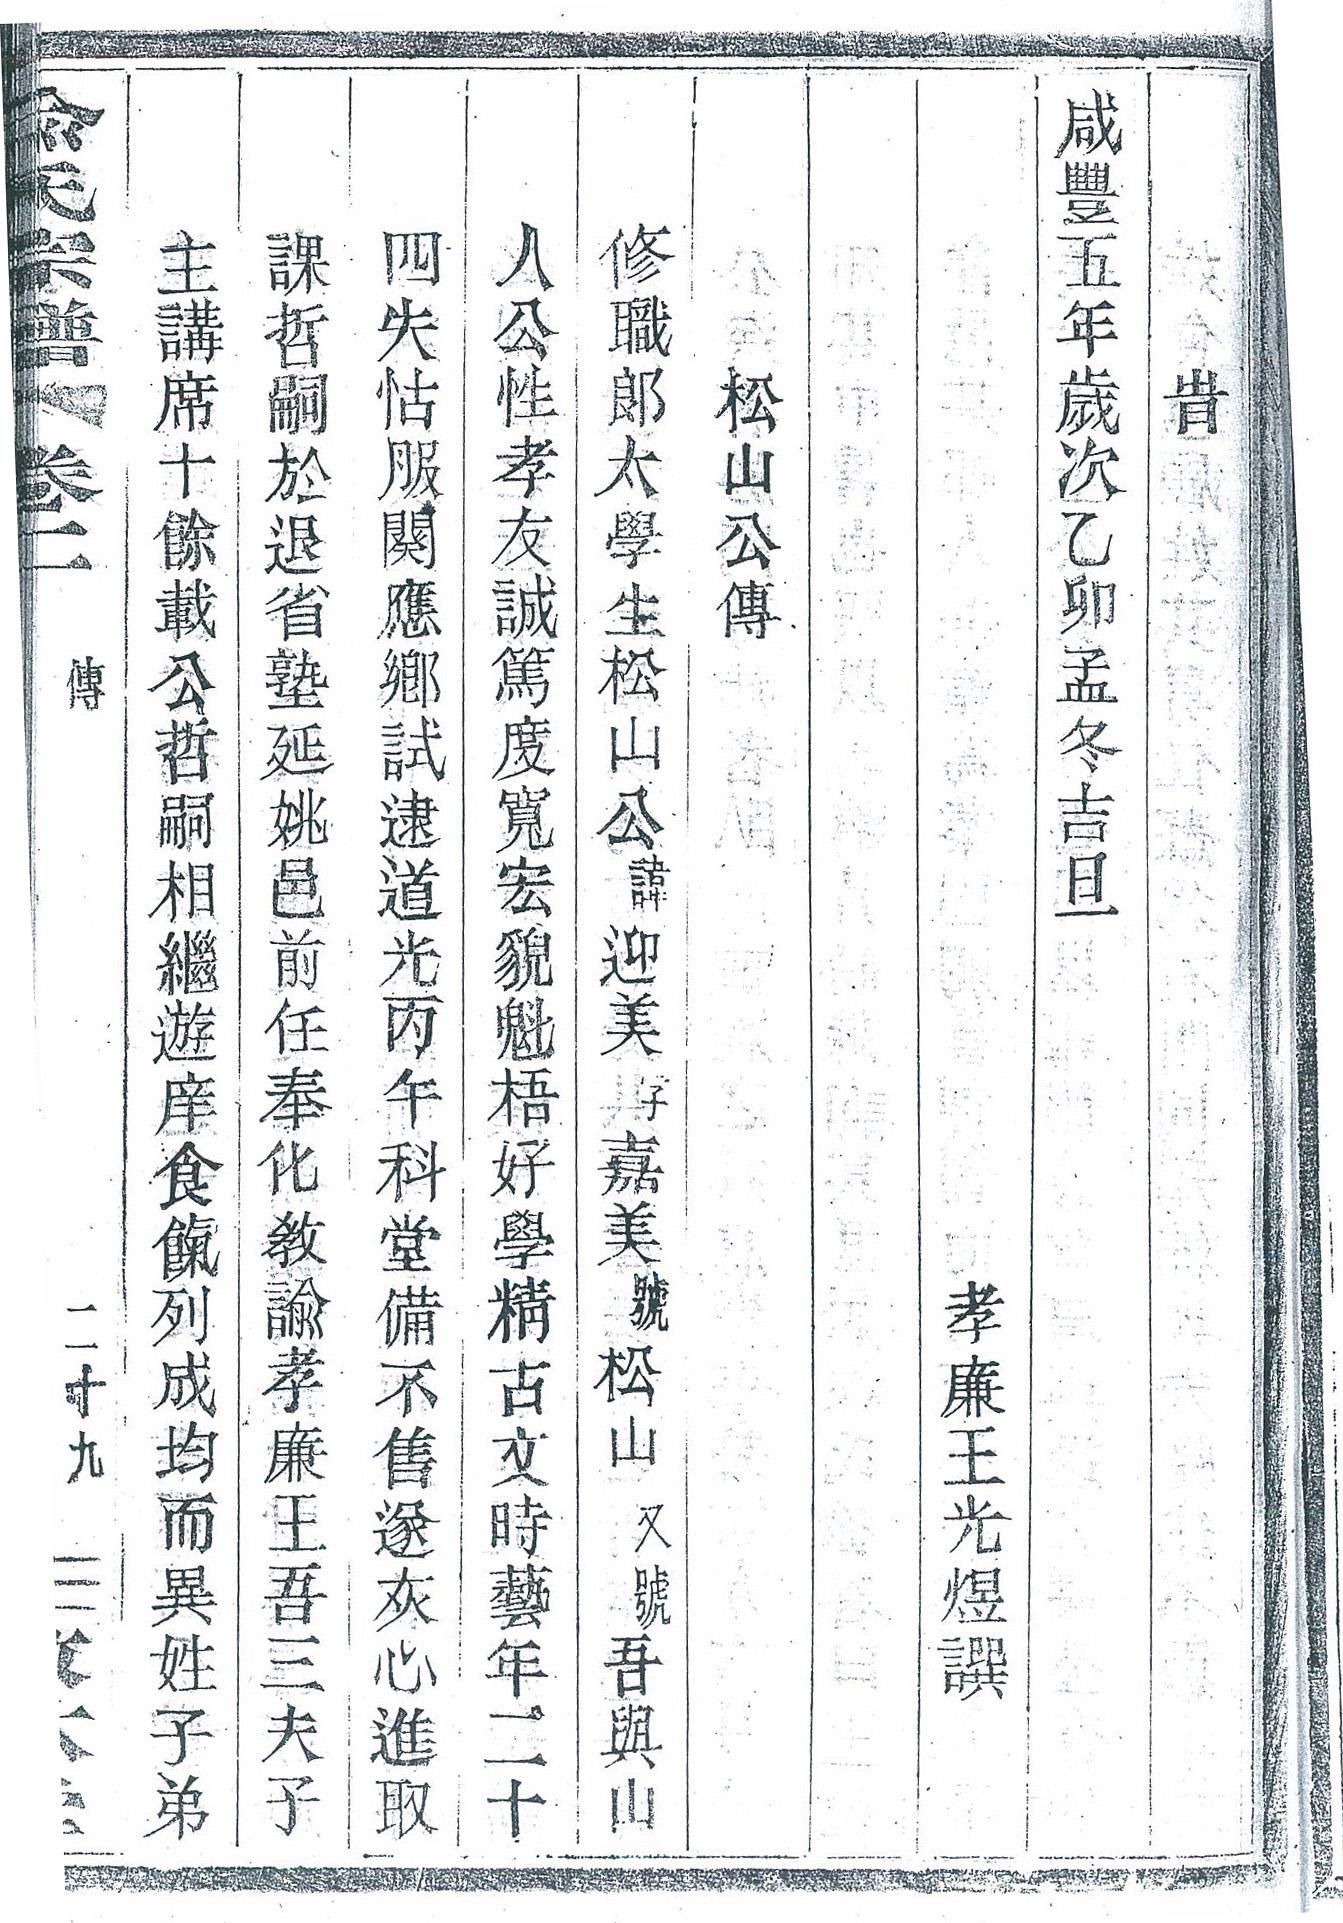 旹
咸豐五年歲次乙卯孟冬吉旦
孝廉王光煜譔
松山公傳
修職郎太學生松山公諱迎美字嘉美號松山又號吾與山
人公性孝友誠篤度寬宏貌魁梧好學精古文時藝年二十
四失怙服闋應鄉試逮道光丙午科堂備不售遂灰心進取
課哲嗣於退省塾延姚邑前任奉化教諭孝廉王吾三夫子
主講席十餘載公哲嗣相繼遊庠食餼列成均而異姓子弟
俞氏宗譜 卷二 傳 二十九